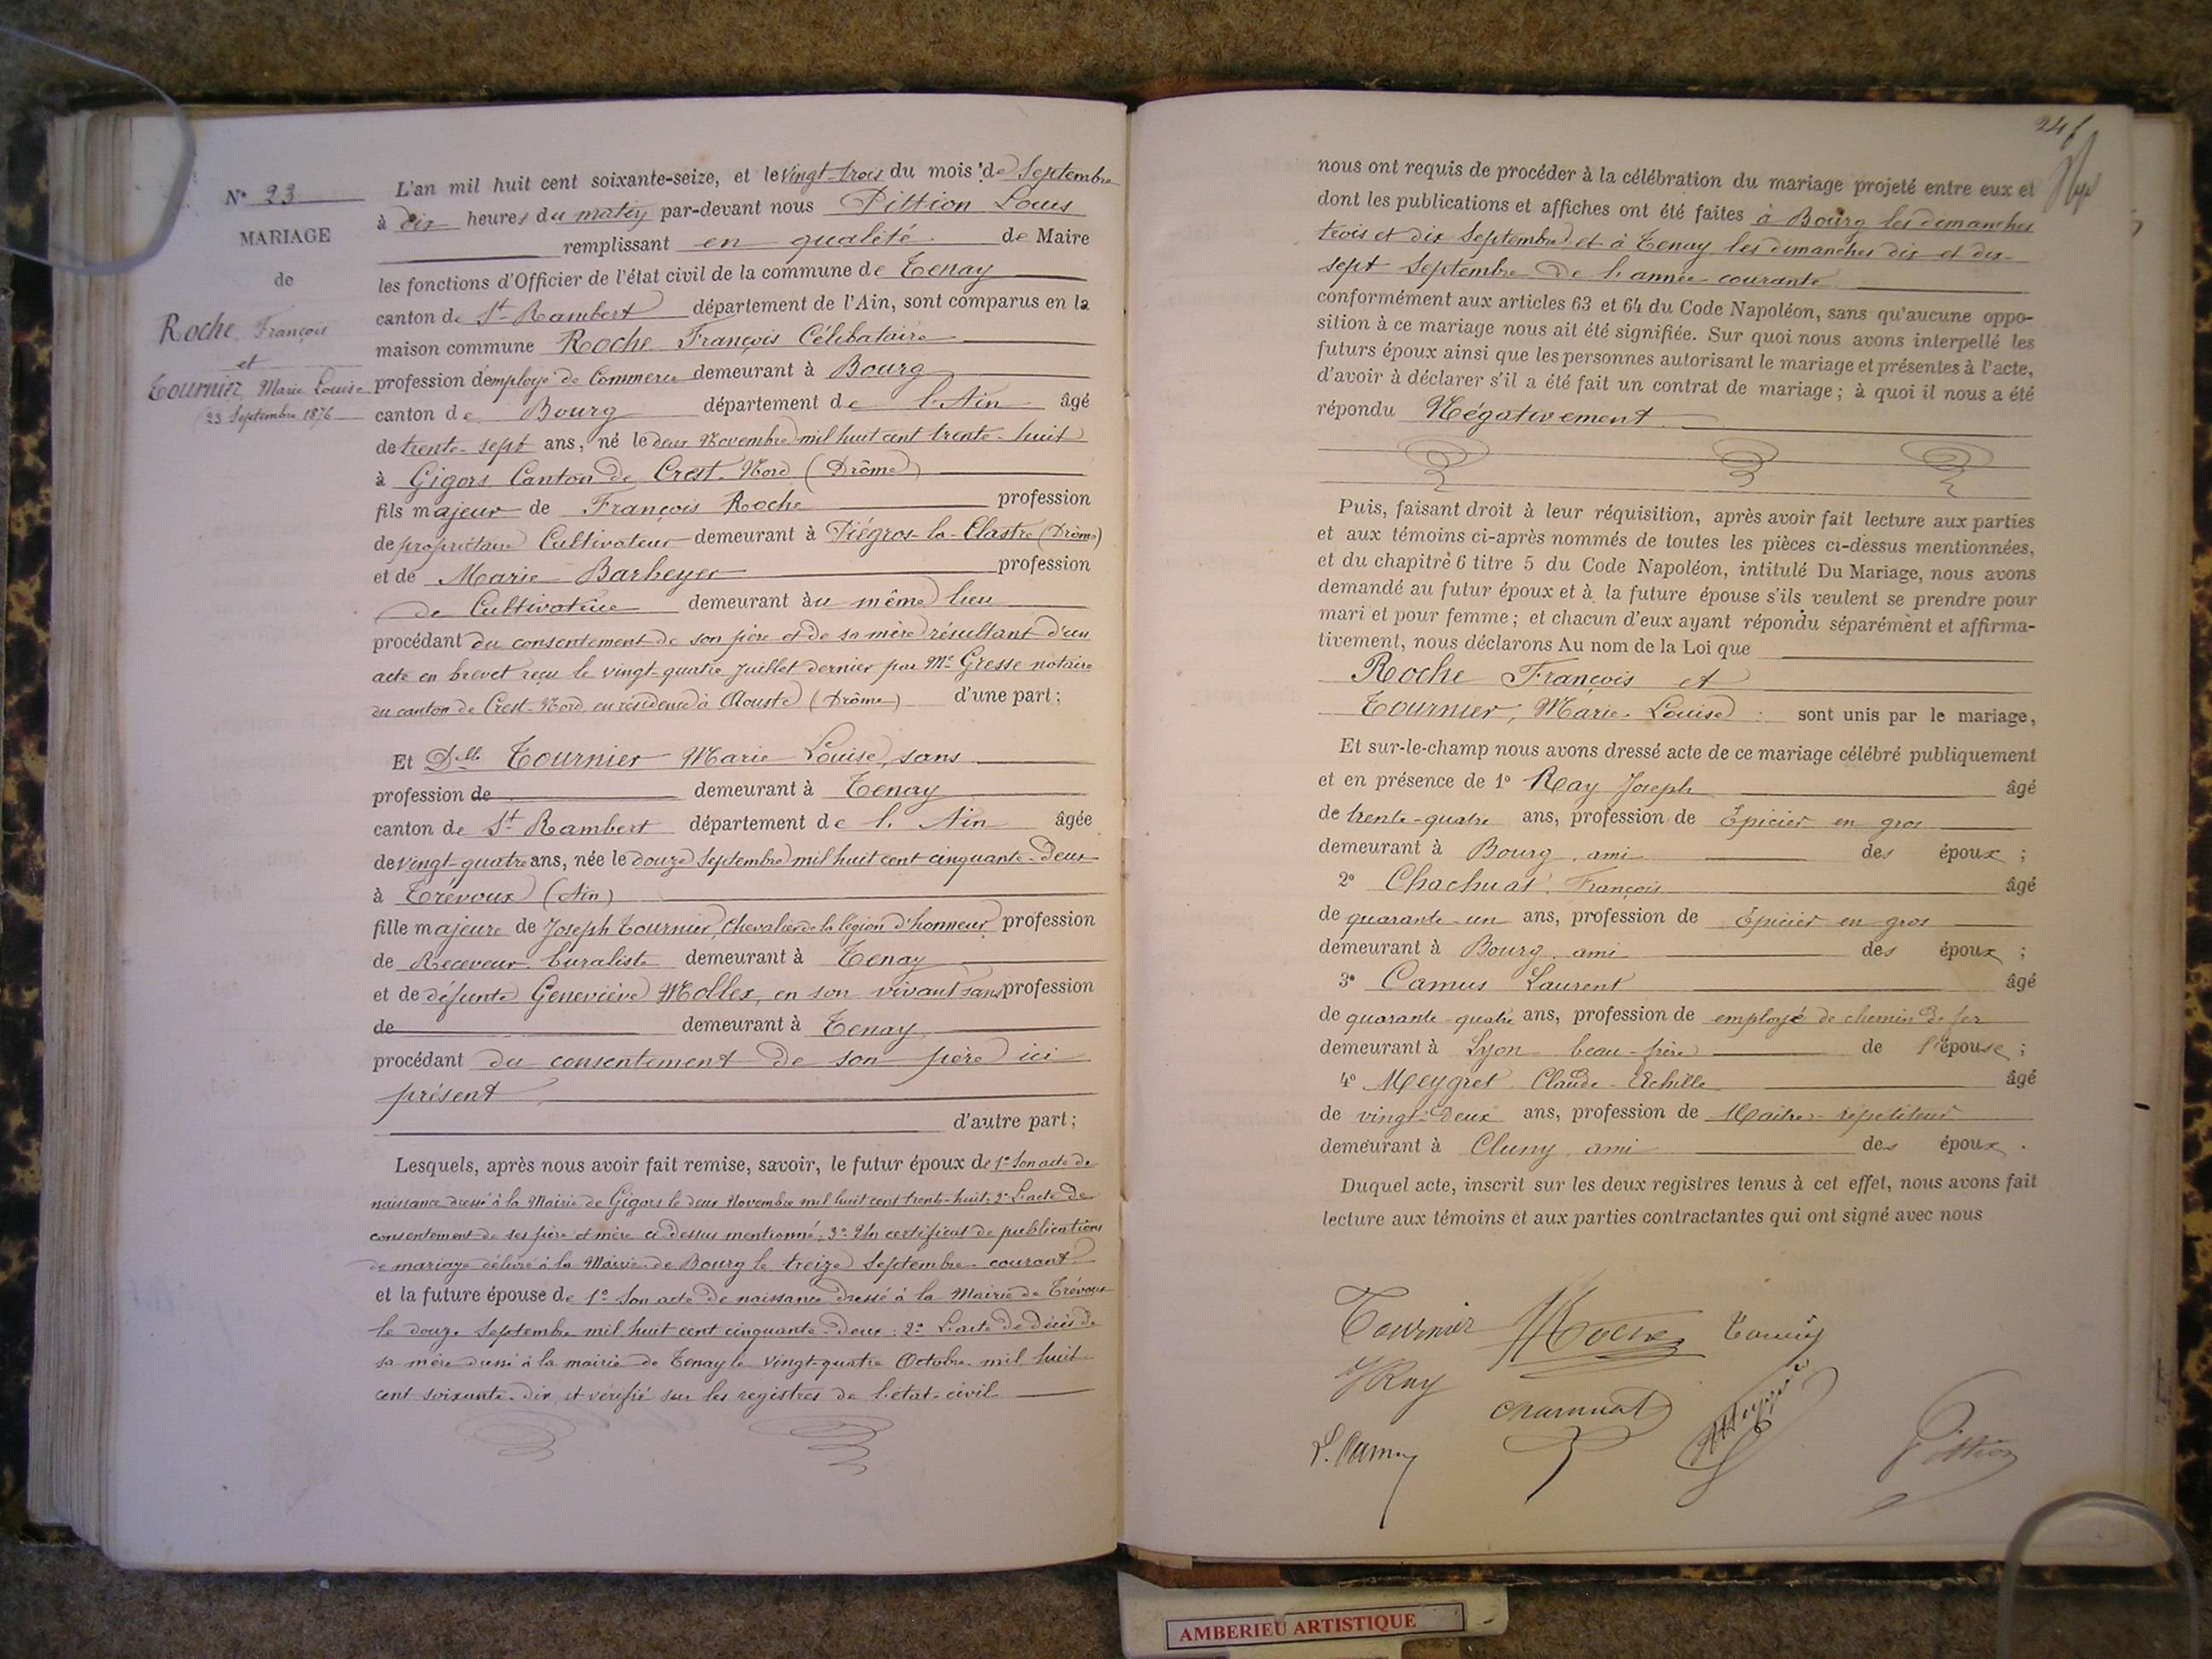 N° 23
MARIAGE
de
Roche François
et
Tournier Marie Louise
23 Septembre 1876
L'an mil huit cent soixante-seize, et le vingt-trois du mois de Septembre
à dix heures du matin par-devant nous Pittion Louis
remplissant en qualité de Maire
les fonctions d'Officier de l'état civil de la commune de Tenay
canton de St Rambert département de l'Ain, sont comparus en la
maison commune Roche François Célibataire
profession d'employé de Commerce demeurant à Bourg
canton de Bourg département de l'Ain âgé
de trente-sept ans, né le deux Novembre mil huit cent trente-huit
à Gigors Canton de Crest-Nord (Drôme)
fils majeur de François Roche profession
de propriétaire Cultivateur demeurant à Piégros-la-Clastre (Drôme)
et de Marie Barbeyer profession
de Cultivatrice demeurant au même lieu
procédant du consentement de son père et de sa mère résultant d'un
acte en brevet reçu le vingt-quatre Juillet dernier par Me Gresse notaire
du canton de Crest-Nord, en résidence à Aouste (Drôme) d'une part;
Et Delle Tournier Marie Louise, sans
profession de demeurant à Tenay
canton de St Rambert département de l'Ain âgée
de vingt-quatre ans, née le douze Septembre mil huit cent cinquante-deux
à Trévoux (Ain)
fille majeure de Joseph Tournier, Chevalier de la légion d'honneur, profession
de Receveur buraliste demeurant à Tenay
et de défunte Geneviève Mollex, en son vivant sans profession
de demeurant à Tenay
procédant du consentement de son père ici
présent
d'autre part;
Lesquels, après nous avoir fait remise, savoir, le futur époux de 1° Son acte de
naissance dressé à la Mairie de Gigors le deux Novembre mil huit cent trente-huit; 2° L'acte de
consentement de ses père et mère ci-dessus mentionné; 3° Un certificat de publications
de mariage délivré à la Mairie de Bourg le treize Septembre courant
et la future épouse de 1° Son acte de naissance dressé à la Mairie de Trévoux
le douze Septembre mil huit cent cinquante-deux; 2° L'acte de décès de
sa mère dressé à la mairie de Tenay le vingt-quatre Octobre mil huit
cent soixante-dix et vérifié sur les registres de l'état-civil
24
nous ont requis de procéder à la célébration du mariage projeté entre eux et
dont les publications et affiches ont été faites à Bourg les dimanches
trois et dix Septembre, et à Tenay les dimanches dix et dix-
sept Septembre de l'année courante
conformément aux articles 63 et 64 du Code Napoléon, sans qu'aucune oppo-
sition à ce mariage nous ait été signifiée. Sur quoi nous avons interpellé les
futurs époux ainsi que les personnes autorisant le mariage et présentes à l'acte,
d'avoir à déclarer s'il a été fait un contrat de mariage; à quoi il nous a été
répondu Négativement
Puis, faisant droit à leur réquisition, après avoir fait lecture aux parties
et aux témoins ci-après nommés de toutes les pièces ci-dessus mentionnées,
et du chapitre 6 titre 5 du Code Napoléon, intitulé Du Mariage, nous avons
demandé au futur époux et à la future épouse s'ils veulent se prendre pour
mari et pour femme; et chacun d'eux ayant répondu séparément et affirma-
tivement, nous déclarons Au nom de la Loi que
Roche François et
Tournier, Marie-Louise sont unis par le mariage,
Et sur-le-champ nous avons dressé acte de ce mariage célébré publiquement
et en présence de 1° Ray Joseph âgé
de trente-quatre ans, profession de Epicier en gros
demeurant à Bourg, ami des époux;
2° Chachuat François âgé
de quarante-un ans, profession de Epicier en gros
demeurant à Bourg, ami des époux;
3° Camus Laurent âgé
de quarante-quatre ans, profession de employé de chemin de fer
demeurant à Lyon beau-frère de l'épouse;
4° Meygret Claude-Achille âgé
de vingt-deux ans, profession de Maître-répétiteur
demeurant à Cluny ami des époux.
Duquel acte, inscrit sur les deux registres tenus à cet effet, nous avons fait
lecture aux témoins et aux parties contractantes qui ont signé avec nous
Tournier Roche
J Ray
Chachuat
L. Camus
Pittion
AMBERIEU ARTISTIQUE